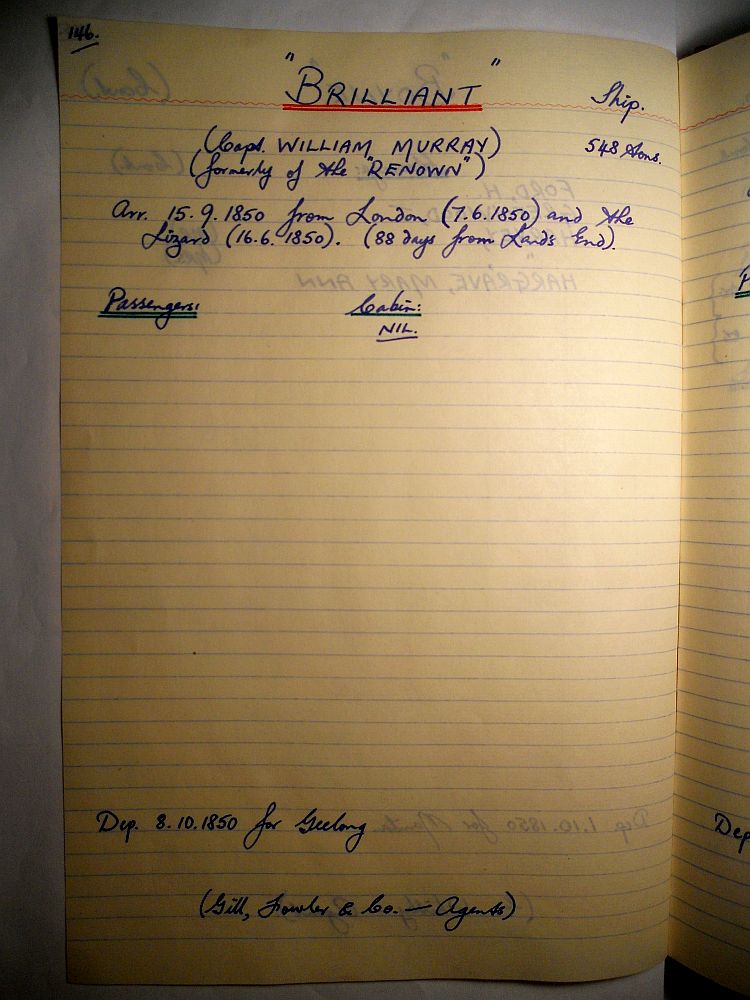 146.
"BRILLIANT" Ship.
(Capt. WILLIAM MURRAY) 548 tons.
(formerly of the "RENOWN")
Arr. 15.9.1850 from London (7.6.1850) and the
Lizard (16.6.1850). (88 days from Lands End).
Passengers: Cabin:
NIL.
Dep. 8.10.1850 for Geelong
Dep
(Gill, Fowler & Co. — Agents)